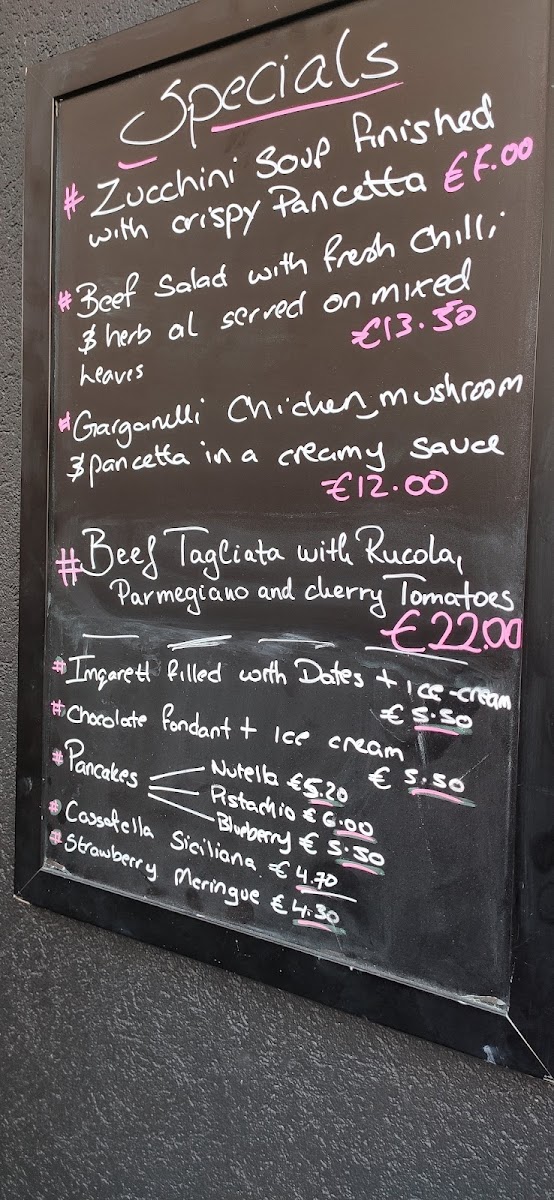 Specials
# Zucchini Soup finished
with crispy Pancetta €7.00
# Beef Salad with fresh chilli
& herb oil served on mixed
leaves €13.50
# Garganelli Chicken, mushroom
& pancetta in a creamy sauce
€12.00
# Beef Tagliata with Rucola,
Parmegiano and cherry Tomatoes
€22.00
# Imqarett filled with Dates + ice-cream
€ 5.50
# Chocolate fondant + Ice cream
€ 5.50
# Pancakes Nutella €5.20
Pistachio € 6.00
Blueberry € 5.50
# Cassatella Siciliana € 4.70
# Strawberry Meringue € 4.30